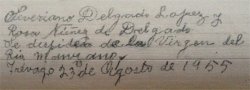 Silveriano Delgado Lopez y
Rosa Núñez de Delgado
se despiden de la Virgen del
Rio Manzano
Trévago 23 de Agosto de 1955